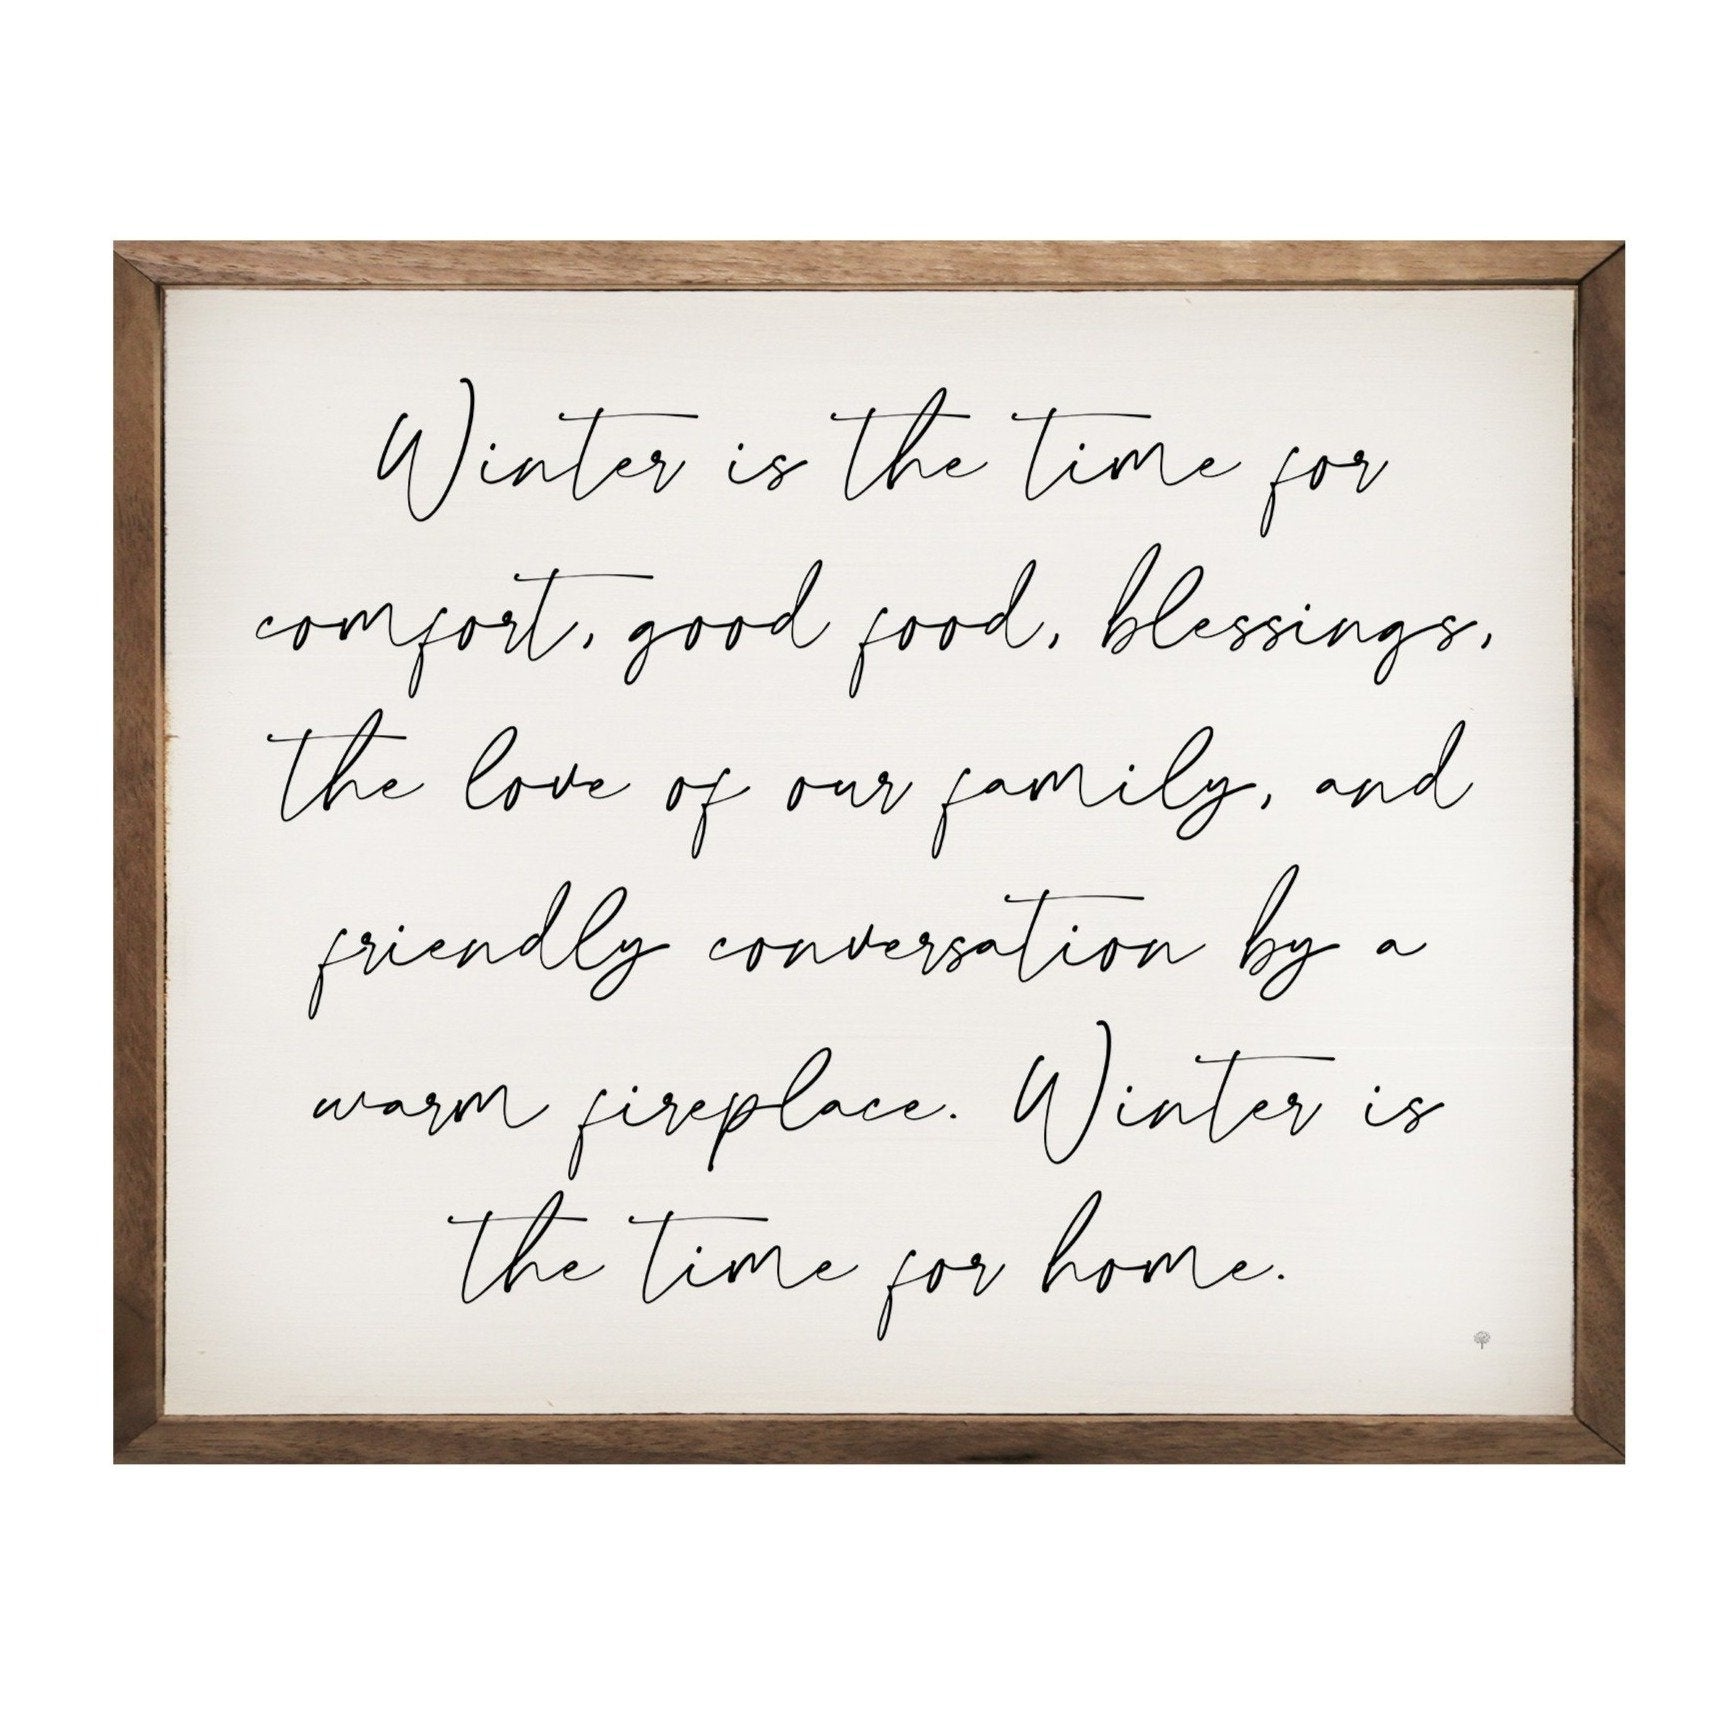 Winter is the time for
comfort, good food, blessings,
the love of our family, and
friendly conversation by a
warm fireplace. Winter is
the time for home.